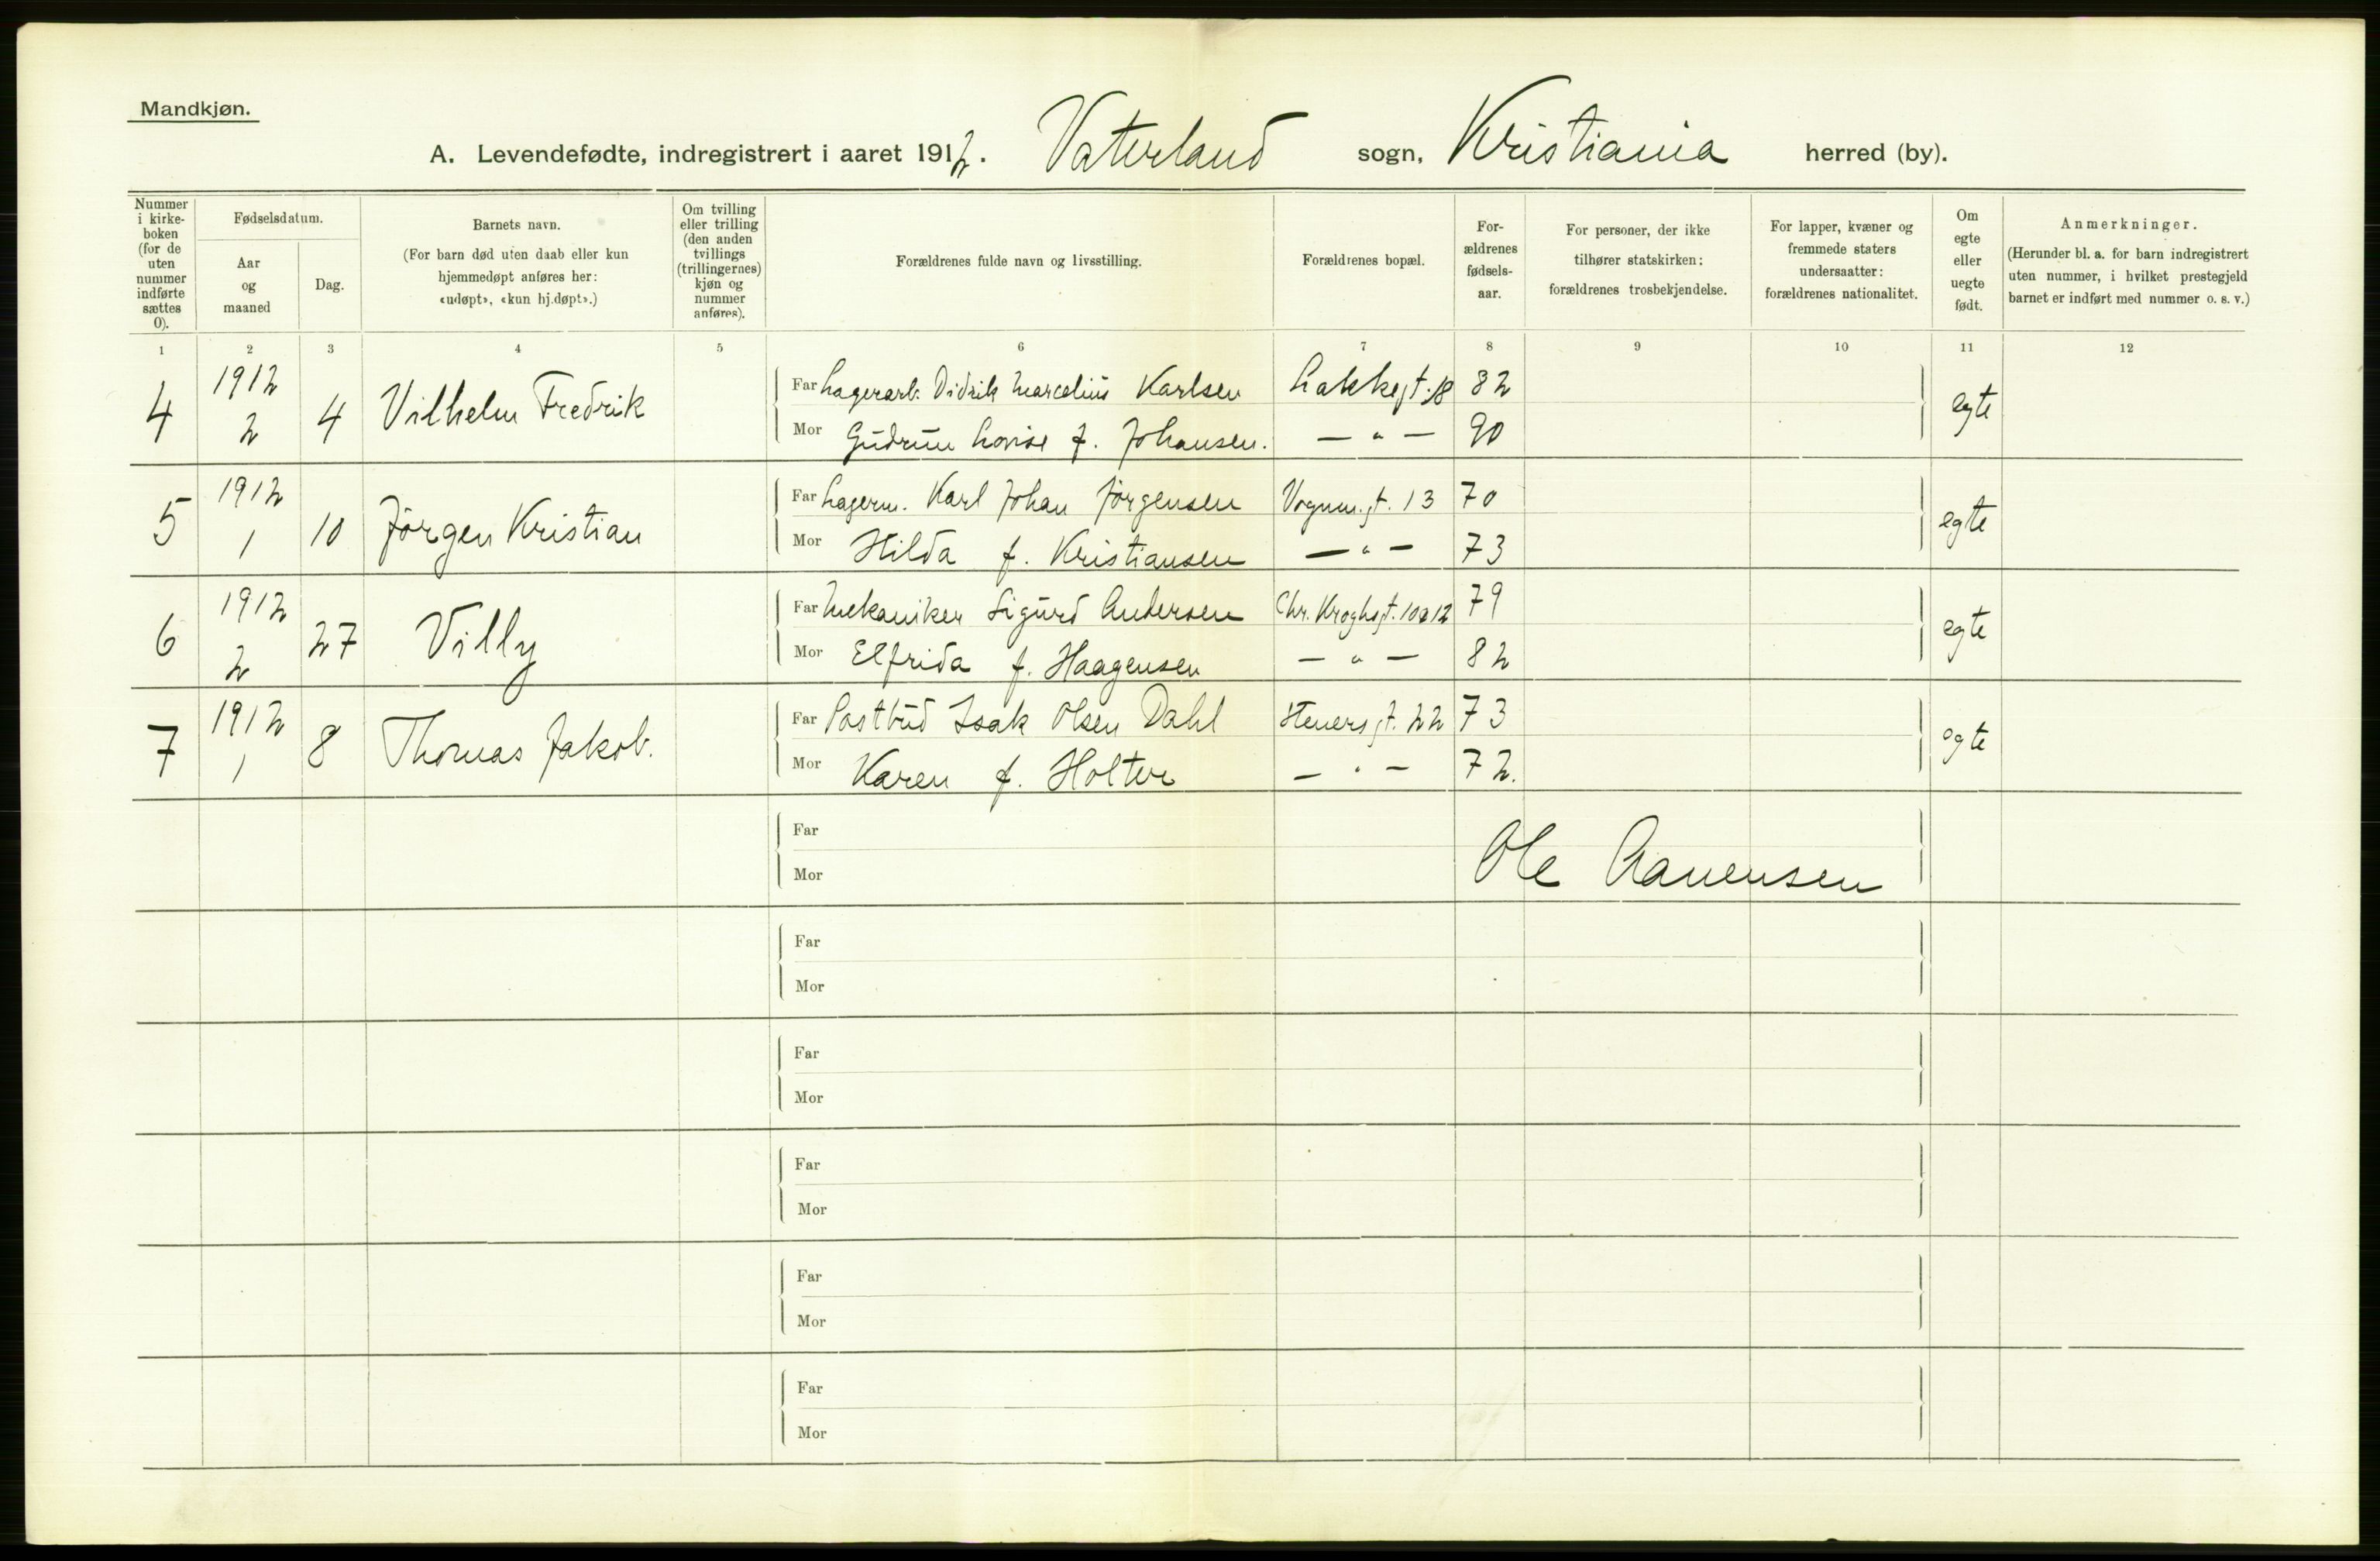 Mandkjøn.
A. Levendefødte, indregistrert i aaret 1912. Vaterland sogn, Kristiania herred (by).
Nummer i kirke-boken (for de uten nummer indførte sættes 0).
Fødselsdatum.
Aar og maaned
Dag.
Barnets navn.
(For barn død uten daab eller kun hjemmedøpt anføres her: «udøpt», «kun hj.døpt».)
Om tvilling eller trilling (den anden tvillings (trillingernes) kjøn og nummer anføres).
Forældrenes fulde navn og livsstilling.
Forældrenes bopæl.
For-ældrenes fødsels-aar.
For personer, der ikke tilhører statskirken: forældrenes trosbekjendelse.
For lapper, kvæner og fremmede staters undersaatter: forældrenes nationalitet.
Om egte eller uegte født.
Anmerkninger.
(Herunder bl. a. for barn indregistrert uten nummer, i hvilket prestegjeld barnet er indført med nummer o. s. v.)
1 2 3 4 5 6 7 8 9 10 11 12
4 1912 2 4 Vilhelm Fredrik Far Lagerarb. Didrik Marcelius Karlsen Lakkegt. 18 82 egte
Mor Gudrun Lovise f. Johansen. — " — 90
5 1912 1 10 Jørgen Kristian Far Lagerm. Karl Johan Jørgensen Vognm.gt. 13 70 egte
Mor Hilda f. Kristiansen — " — 73
6 1912 2 27 Villy Far Mekaniker Sigurd Andersen Chr. Kroghsgt. 10a 12 79 egte
Mor Elfrida f. Haagensen — " — 82
7 1912 1 8 Thomas Jakob. Far Postbud Isak Olsen Dahl Stenersgt. 22 73 egte
Mor Karen f. Holter — " — 72.
Far
Mor
Ole Aanensen
Far
Mor
Far
Mor
Far
Mor
Far
Mor
Far
Mor